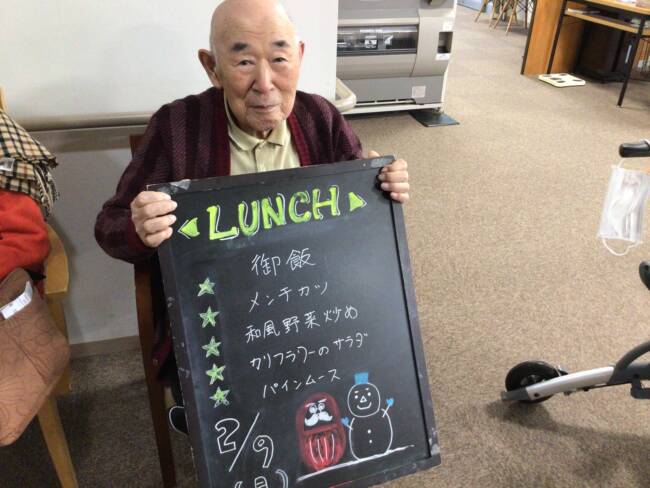 LUNCH
御飯
メンチカツ
和風野菜炒め
カリフラワーのサラダ
パインムース
2/9
(月)